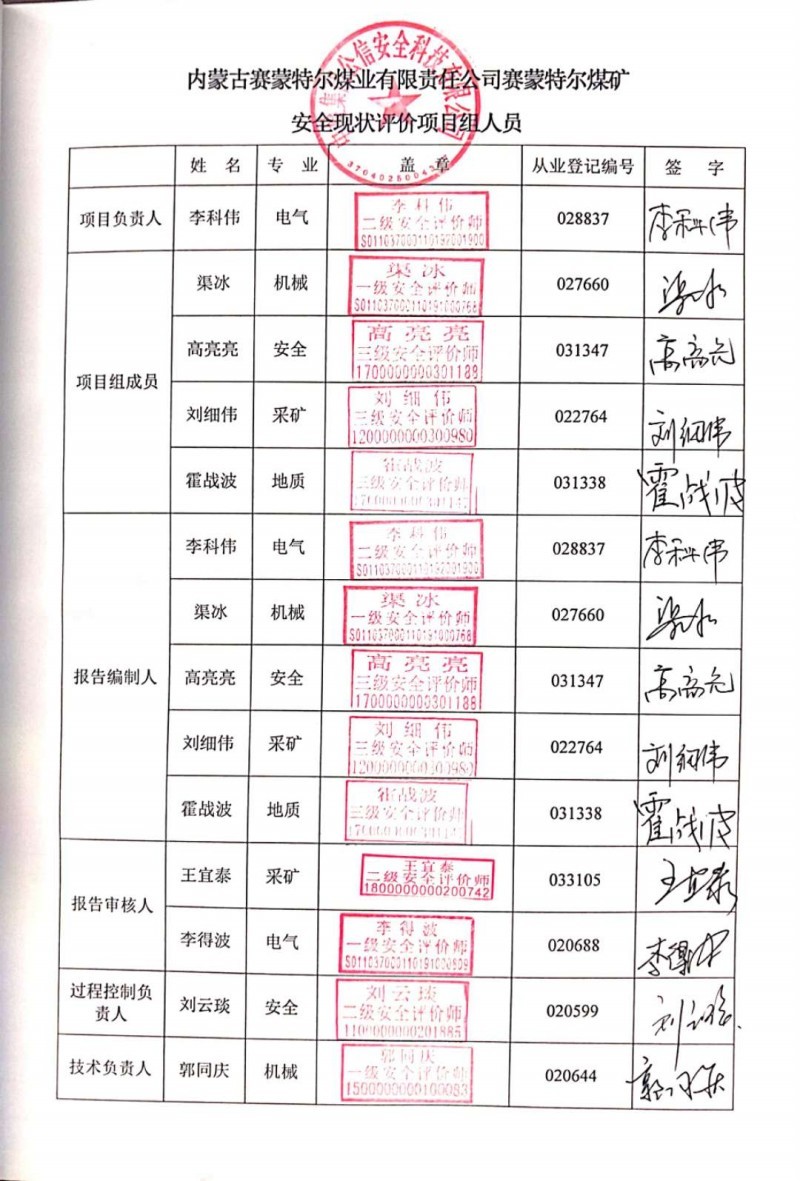 内蒙古赛蒙特尔煤业有限责任公司赛蒙特尔煤矿
安全现状评价项目组人员
公信安全科技有限公司
姓 名 专 业 盖 章 从业登记编号 签 字
项目负责人 李科伟 电气 李科伟 二级安全评价师 S011037000110192001900 028837 李科伟
项目组成员
渠冰 机械 渠冰 一级安全评价师 S011037000110191000768 027660 渠冰
高亮亮 安全 高亮亮 三级安全评价师 1700000000301188 031347 高亮亮
刘细伟 采矿 刘细伟 三级安全评价师 1200000000300980 022764 刘细伟
霍战波 地质 霍战波 三级安全评价师 031338 霍战波
报告编制人
李科伟 电气 李科伟 二级安全评价师 S011037000110192001900 028837 李科伟
渠冰 机械 渠冰 一级安全评价师 S011037000110191000768 027660 渠冰
高亮亮 安全 高亮亮 三级安全评价师 1700000000301188 031347 高亮亮
刘细伟 采矿 刘细伟 三级安全评价师 1200000000300980 022764 刘细伟
霍战波 地质 霍战波 三级安全评价师 031338 霍战波
报告审核人
王宜泰 采矿 王宜泰 二级安全评价师 1800000000200742 033105 王宜泰
李得波 电气 李得波 一级安全评价师 S011037000110191000809 020688 李得波
过程控制负
责人 刘云琰 安全 刘云琰 二级安全评价师 1100000000201885 020599 刘云琰
技术负责人 郭同庆 机械 郭同庆 一级安全评价师 1500000000100083 020644 郭同庆